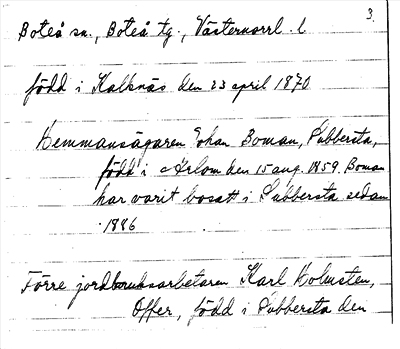 3.
Boteå sn., Boteå tg., Västernorrl. l
född i Kalknäs den 23 april 1870
Hemmansägaren Johan Boman, Subbersta,
född i Arlom den 15 aug. 1859. Boman
har varit bosatt i Subbersta sedan
1886
Förre jordbruksarbetaren Karl Holmsten,
Offer, född i Subbersta den